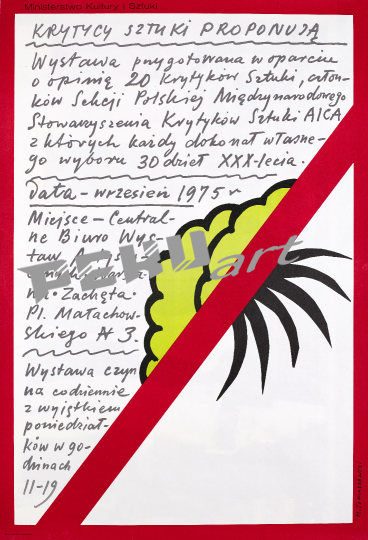 Ministerstwo Kultury i Sztuki
KRYTYCY SZTUKI PROPONUJĄ
Wystawa przygotowana w oparciu
o opinię 20 Krytyków Sztuki, człon-
ków Sekcji Polskiej Międzynarodowego
Stowarzyszenia Krytyków Sztuki AICA
z których każdy dokonał własne-
go wyboru 30 dzieł XXX-lecia.
Data – wrzesień 1975 r
Miejsce – Central-
ne Biuro Wys-
taw
art
Zachęta.
Pl. Małachow-
skiego № 3.
Wystawa czyn
na codziennie
z wyjątkiem
poniedział-
ków w go-
dzinach
11-19